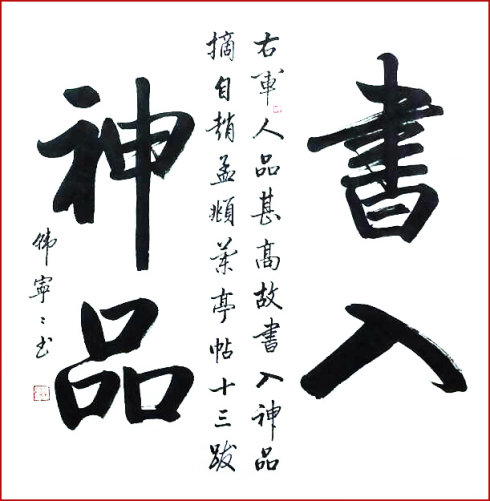 書入
右軍人品甚高故書入神品
摘自趙孟頫蘭亭帖十三跋
神品
偉寧〻书